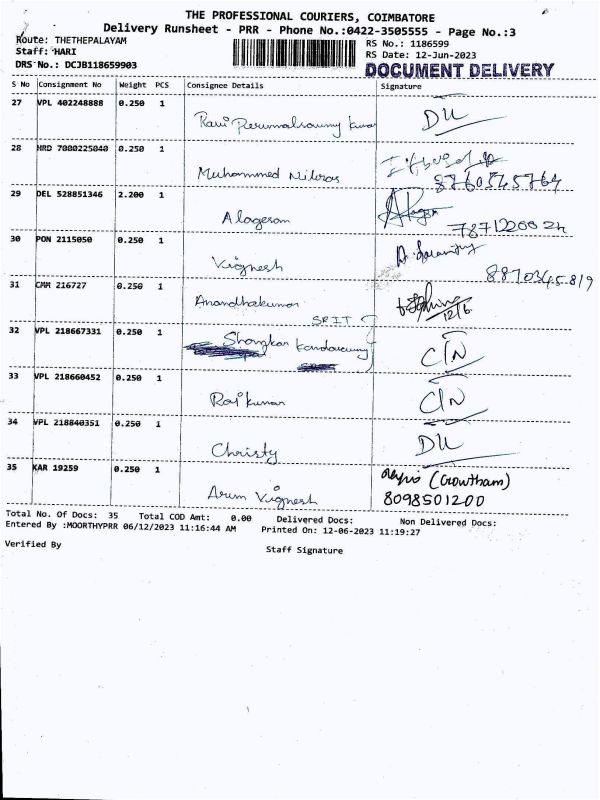 THE PROFESSIONAL COURIERS, COIMBATORE
Delivery Runsheet - PRR - Phone No.:0422-3505555 - Page No.:3
Route: THETHEPALAYAM
RS No.: 1186599
Staff: HARI
RS Date: 12-Jun-2023
DRS No.: DCJB118659903
DOCUMENT DELIVERY
S No Consignment No Weight PCS Consignee Details Signature
27 VPL 402248888 0.250 1
DLL
28 NRD 7000225040 0.250 1
Muhammed
8760545764
29 DEL 528851346 2.200 1
Alagesan
30 PON 2115050 0.250 1
Vignesh
31 CMM 216727 0.250 1
Anandhakumar
12/6
SRIT
32 VPL 218667331 0.250 1
Shangkar
C/N
33 VPL 218660452 0.250 1
Rajkumar
C/N
34 VPL 218840351 0.250 1
Christy
DLL
35 KAR 19259 0.250 1
(Gowtham)
Arun Vignesh
8098501200
Total No. Of Docs: 35 Total COD Amt: 0.00 Delivered Docs: Non Delivered Docs:
Entered By :MOORTHYPRR 06/12/2023 11:16:44 AM Printed On: 12-06-2023 11:19:27
Verified By
Staff Signature